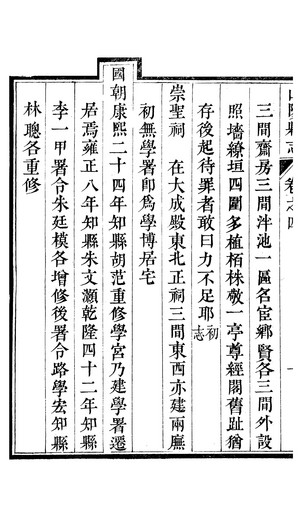 卷之四
三間齋房三間泮池一區名宦鄉賢各三間外設
照墻繚垣四圍多植栢株敬一亭尊經閣舊趾猶
存後起待罪者敢曰力不足耶初志
崇聖祠 在大成殿東北正祠三間東西亦建兩廡
初無學署卽爲學博居宅
國朝康熙二十四年知縣胡范重修學宮乃建學署遷
居焉雍正八年知縣朱文灝乾隆四十二年知縣
李一甲署令朱廷模各增修後署令路學宏知縣
林聰各重修